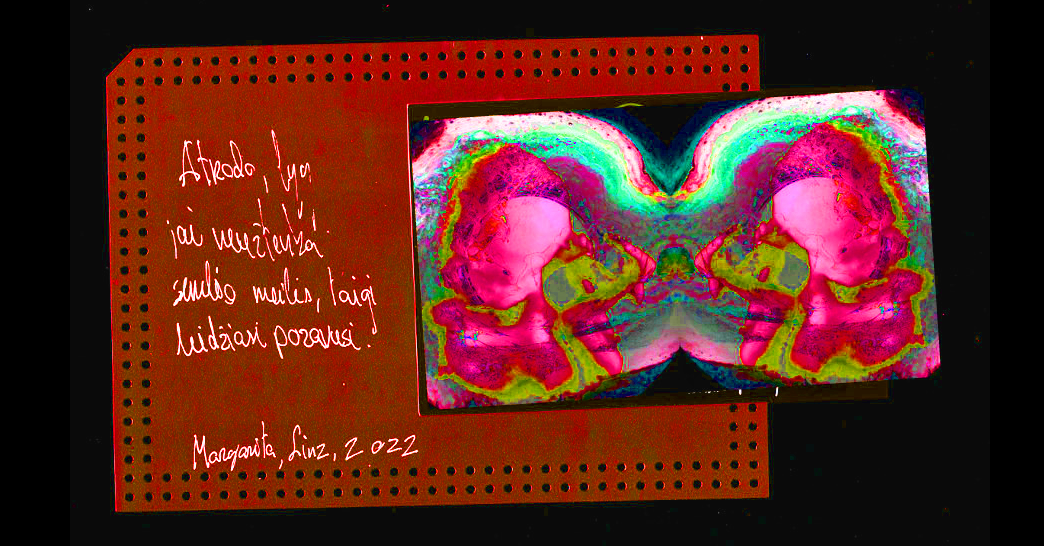 Atrodo, lyg
jai neužtenka
saulės meilės, taigi
leidžiasi
Margarita, Linz, 2022